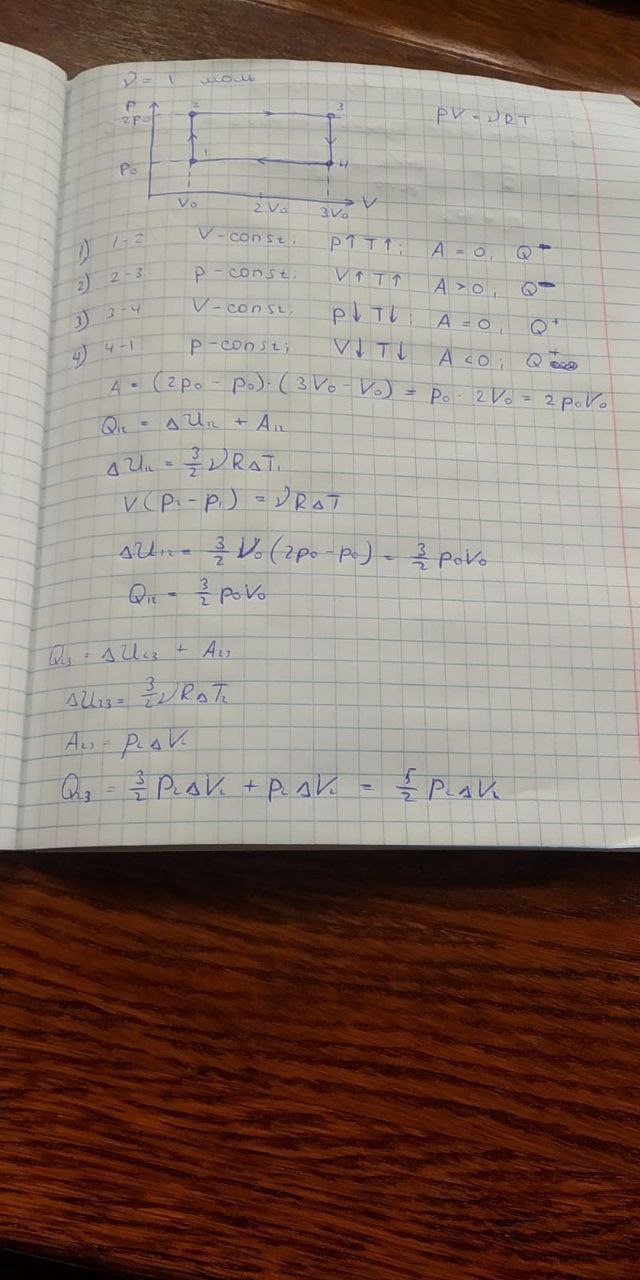 ν = 1 моль
P
2p₀ 2 3 PV = νRT
p₀ 1 4
V₀ 2V₀ 3V₀ V
1) 1-2 V-const; p↑T↑; A = 0, Q⁻
2) 2-3 p-const; V↑T↑ A > 0, Q⁻
3) 3-4 V-const; p↓T↓; A = 0, Q⁺
4) 4-1 p-const; V↓T↓ A < 0; Q⁺
A = (2p₀ - p₀)·(3V₀ - V₀) = p₀ · 2V₀ = 2p₀V₀
Q₁₂ = ΔU₁₂ + A₁₂
ΔU₁₂ = 3/2 νRΔT₁
V(p₂ - p₁) = νRΔT
ΔU₁₂ = 3/2 V₀(2p₀ - p₀) = 3/2 p₀V₀
Q₁₂ = 3/2 p₀V₀
Q₂₃ = ΔU₂₃ + A₂₃
ΔU₂₃ = 3/2 νRΔT₂
A₂₃ = p₂ΔV₂
Q₂₃ = 3/2 p₂ΔV₂ + p₂ΔV₂ = 5/2 p₂ΔV₂